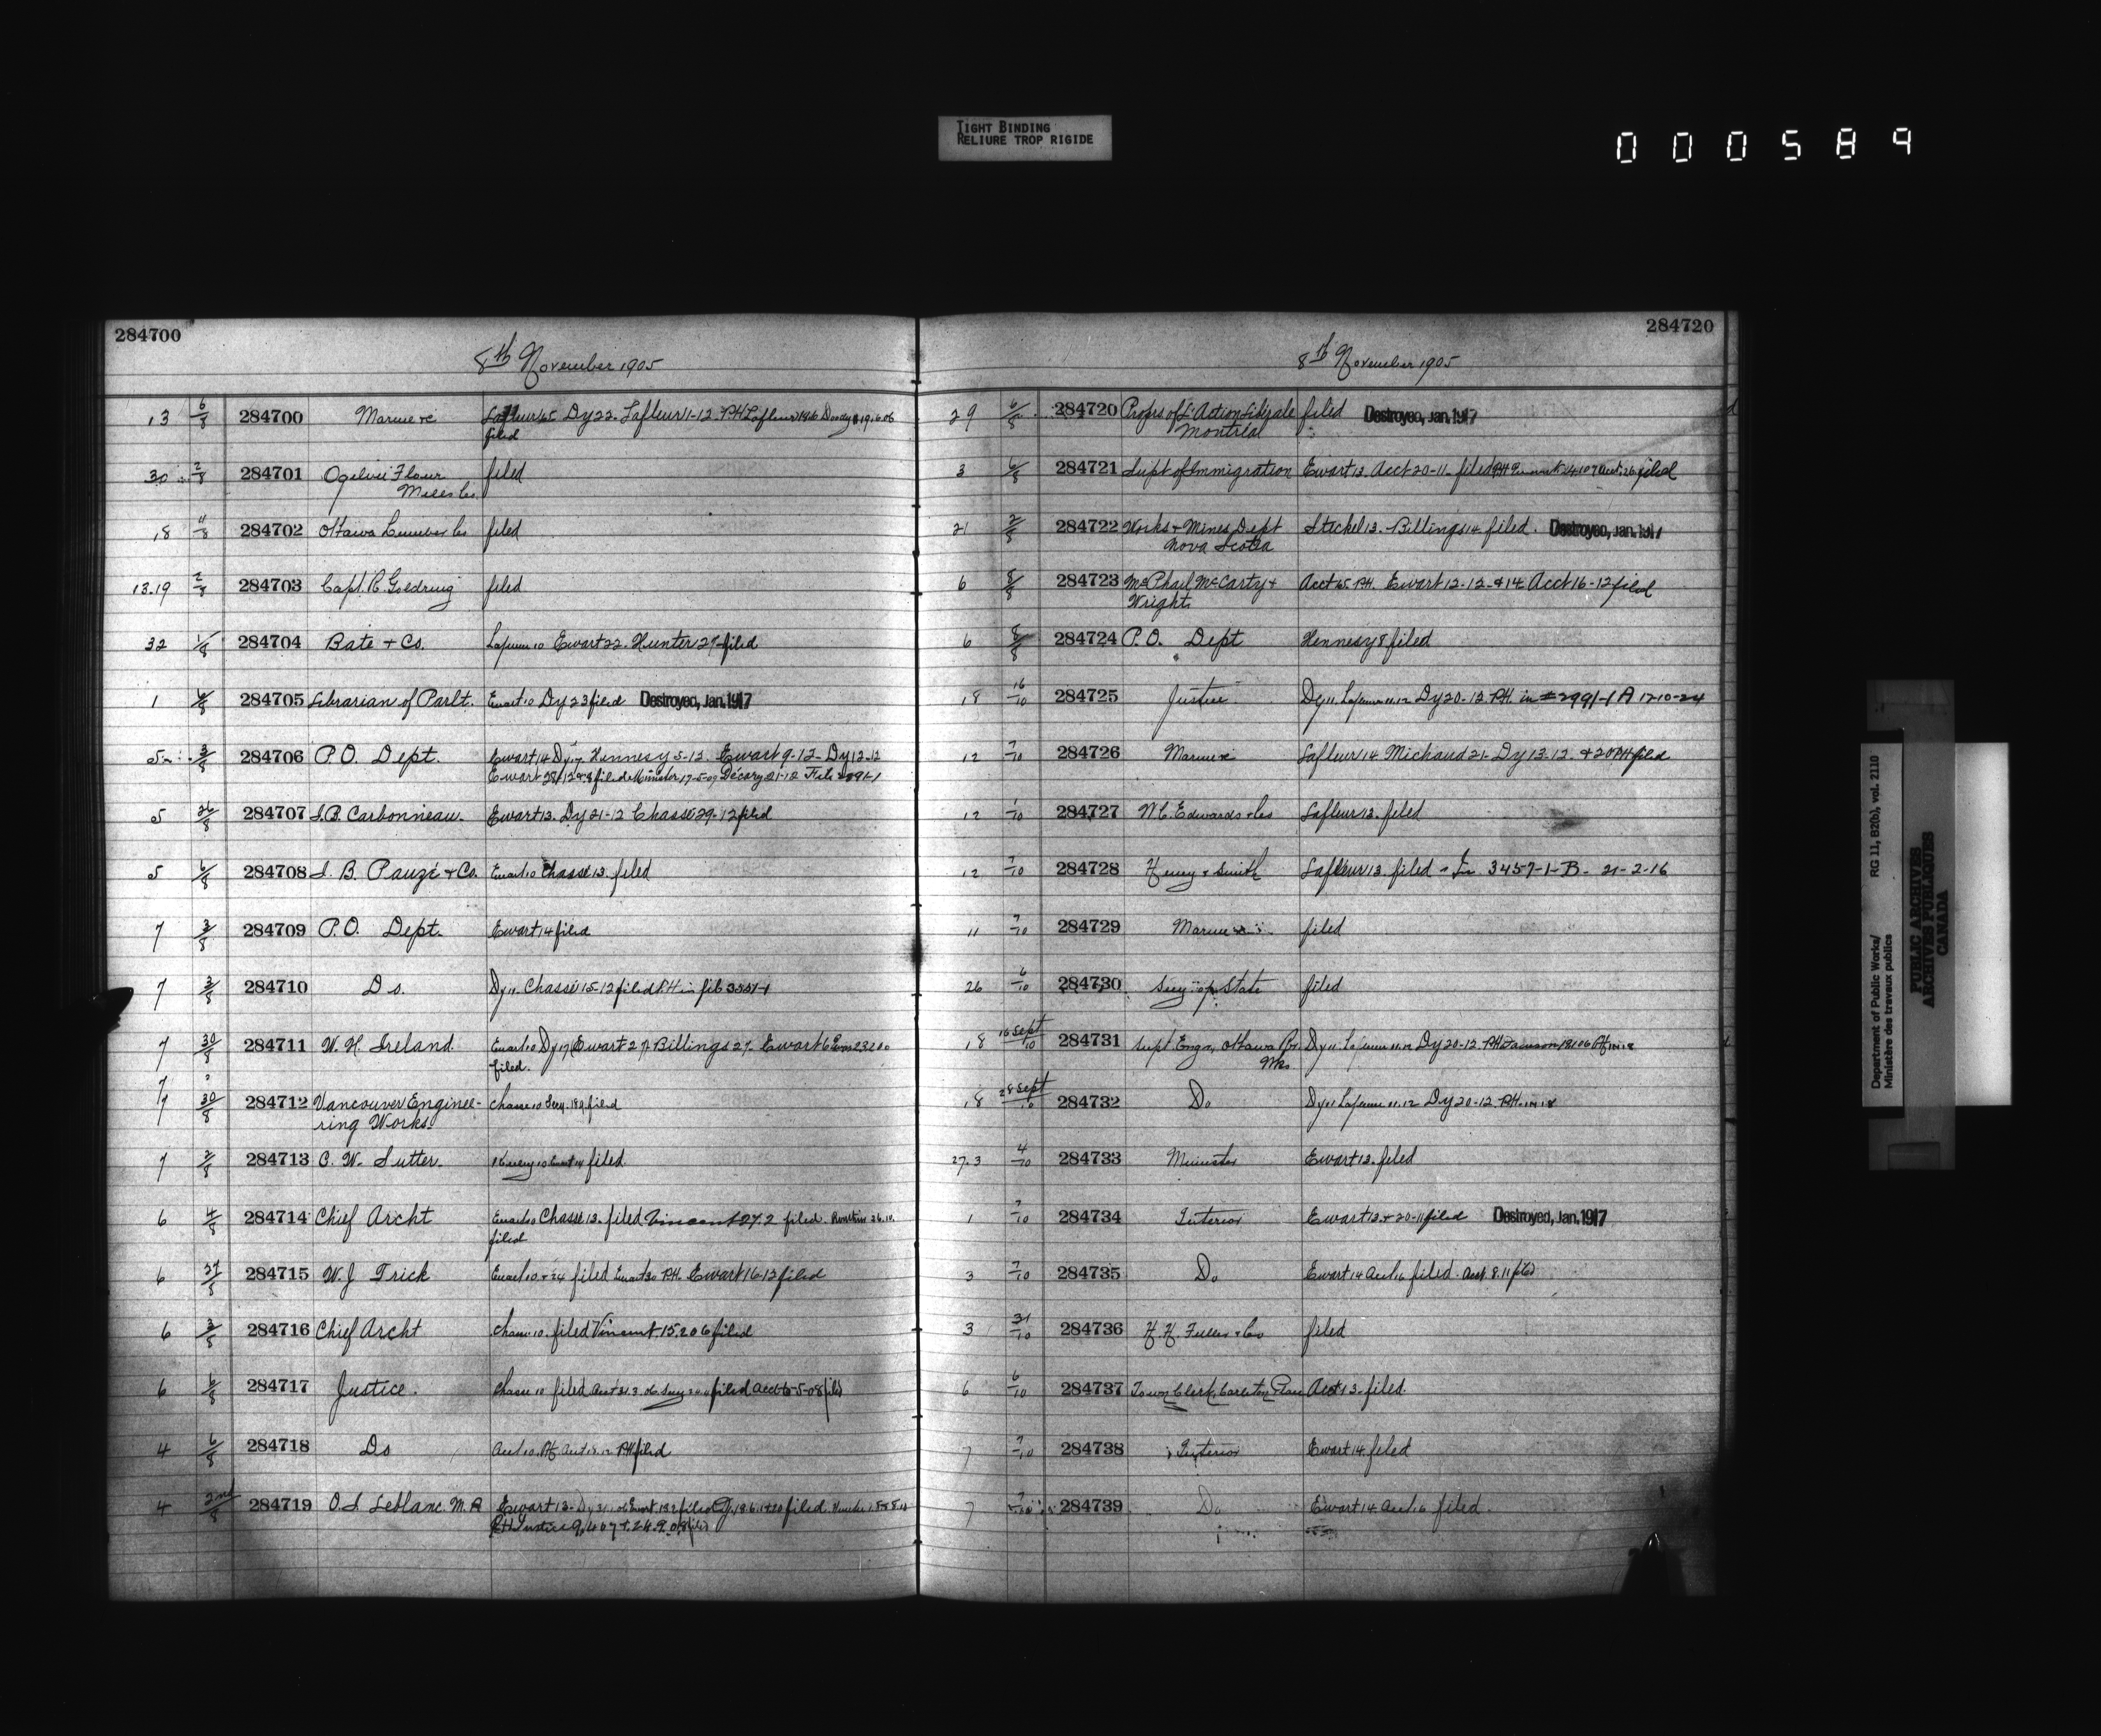 TIGHT BINDING
RELIURE TROP RIGIDE
000589
284700
8th November 1905
13 6/8 284700 Marine &c Lafleur 65 Dy 22. Lafleur 1-12 PH Lafleur 14.6 Doody 19.6.06
filed
30 2/8 284701 Ogilvie Flour filed
Mills Co.
18 4/8 284702 Ottawa Lumber Co filed
13.19 2/8 284703 Capt. R. Goldring filed
32 1/8 284704 Bate & Co. Ewart 22. Hunter 27 filed
1 6/8 284705 Librarian of Parlt. Ewart 10 Dy 23 filed Destroyed, Jan. 1917
5 3/8 284706 P.O. Dept. Ewart 14 Dy 17 Hennesy 5-12. Ewart 9-12- Dy 12-12
Ewart 28/12 filed Minister 17-5-09 Décary 21-12 File
5 26/8 284707 J.B. Carbonneau. Ewart 13. Dy 21-12 Chassé 29-12 filed
5 6/8 284708 J. B. Pauzé & Co. Ewart 10 Chassé 13. filed
7 3/8 284709 P.O. Dept. Ewart 14 filed
7 3/8 284710 Do. Dy 11. Chassé 15-12 filed PH in file 3551-1
7 30/8 284711 W. H. Ireland. Ewart 10 Dy 17 Ewart 27. Billings 27. Ewart 6
filed.
7
7 30/8 284712 Vancouver Enginee- Chasse 10 Secy. filed
ring Works.
7 2/8 284713 C. W. Sutter. Ewart 14 filed.
6 4/8 284714 Chief Archt Ewart 10 Chassé 13. filed Vincent 27.2 filed.
filed
6 27/8 284715 W. J Trick Ewart 10 & 24 filed Ewart 30 P.H. Ewart 16-12 filed
6 3/8 284716 Chief Archt Chasse 10. filed Vincent 15.2 06 filed
6 6/8 284717 Justice. Chasse 10 filed Acct 31.3.06 Secy filed Acct 6-5-08 filed
4 6/8 284718 Do Acct 10. PH. Acct PH filed
4 2nd/8 284719 O. J. Leblanc. M.P. Ewart 13- filed filed
PH Justice
284720
8th November 1905
29 6/8 284720 Proprs of L'Action Libérale filed Destroyed, Jan. 1917
Montréal
3 6/8 284721 Supt of Immigration Ewart 13. Acct 20-11- filed filed
21 2/8 284722 Works & Mines Dept Steckel 13.- Billings 14. filed. Destroyed, Jan. 1917
Nova Scotia
6 8/8 284723 McPhail McCarty & Acct 65. PH. Ewart 12-12- & 14 Acct 16-12 filed
Wright
6 8/8 284724 P.O. Dept Hennesy 8 filed
18 16/10 284725 Justice Dy 11. Dy 20-12. P.H. in #2991-1 A 17-10-24
12 7/10 284726 Marine &c Lafleur 14. Michaud 21- Dy 13-12. & 20 PH filed
12 1/10 284727 W. C. Edwards & Co Lafleur 13. filed
12 7/10 284728 Henry & Smith Lafleur 13. filed - In 3457-1-B- 21-2-16
11 7/10 284729 Marine &c filed
26 6/10 284730 Secy of State filed
18 16 Sept/10 284731 Supt Engr, Ottawa Rr. Dy 11. Dy 20-12. PH
Wks
18 28 Sept/10 284732 Do Dy 11 Dy 20-12. PH.
27.3 4/10 284733 Minister Ewart 13. filed
1 7/10 284734 Interior Ewart 13 & 20-11 filed Destroyed, Jan. 1917
3 7/10 284735 Do Ewart 14 Acct 16 filed. Acct 8.11 filed
3 31/10 284736 H. H. Fuller & Co filed
6 6/10 284737 Town Clerk, Carleton Place Acct 13. filed.
7 7/10 284738 Interior Ewart 14. filed
7 7/10 284739 Do Ewart 14 Acct 16 filed.
Department of Public Works/ RG 11, B2(b), vol. 2110
Ministère des travaux publics
PUBLIC ARCHIVES
ARCHIVES PUBLIQUES
CANADA